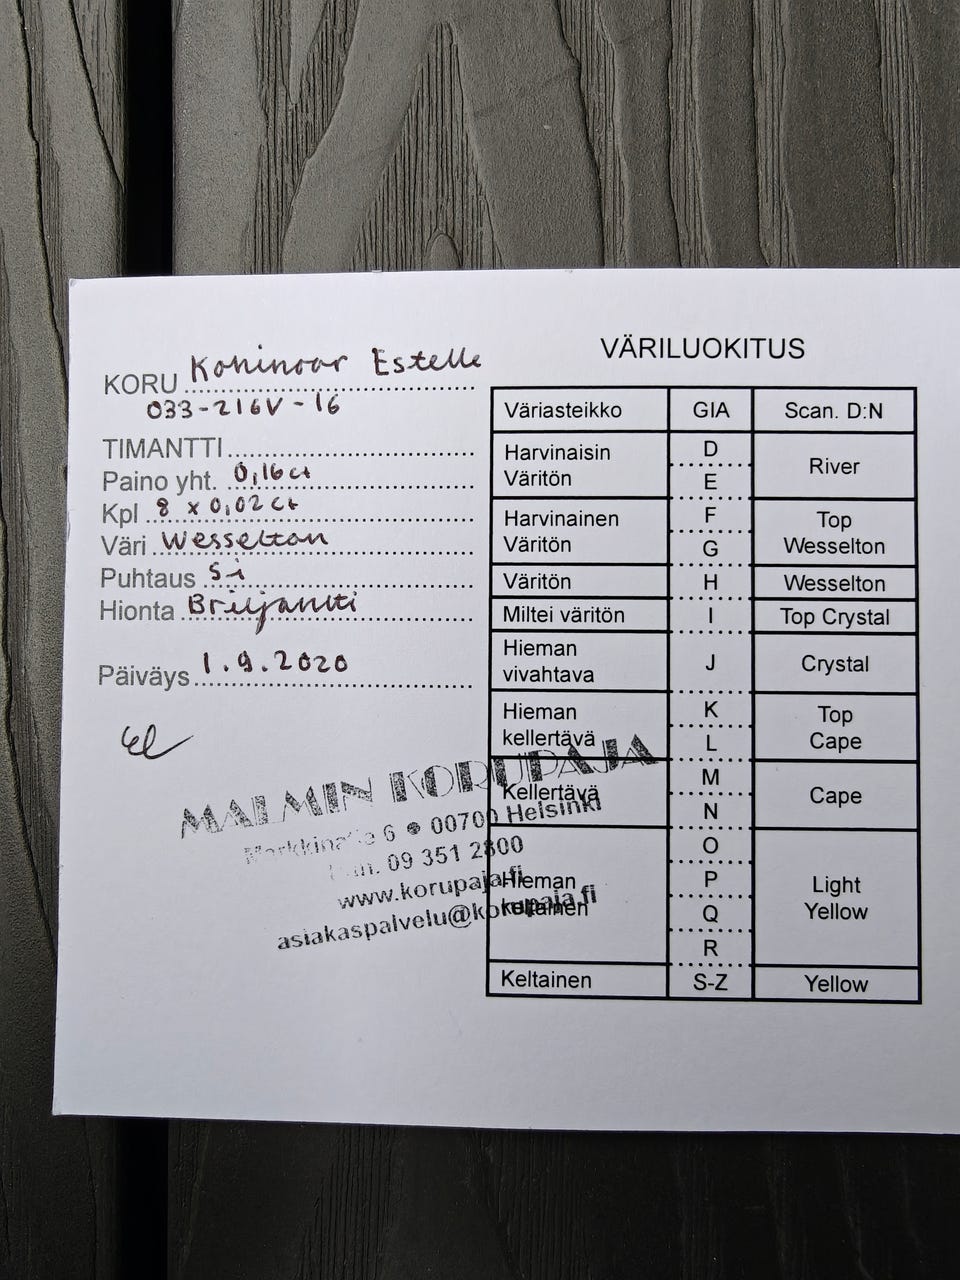 KORU Kohinoor Estelle
033-216V-16
TIMANTTI
Paino yht. 0,16ct
Kpl 8 x 0,02ct
Väri Wesselton
Puhtaus Si
Hionta Briljantti
Päiväys 1.9.2020
MALMIN KORUPAJA
6 • 00700 Helsinki
09 351 2800
www.korupaja.fi
asiakaspalvelu@korupaja.fi
VÄRILUOKITUS
Väriasteikko GIA Scan. D:N
Harvinaisin Väritön D E River
Harvinainen Väritön F G Top Wesselton
Väritön H Wesselton
Miltei väritön I Top Crystal
Hieman vivahtava J Crystal
Hieman kellertävä K L Top Cape
Kellertävä M N Cape
Hieman keltainen O P Q R Light Yellow
Keltainen S-Z Yellow